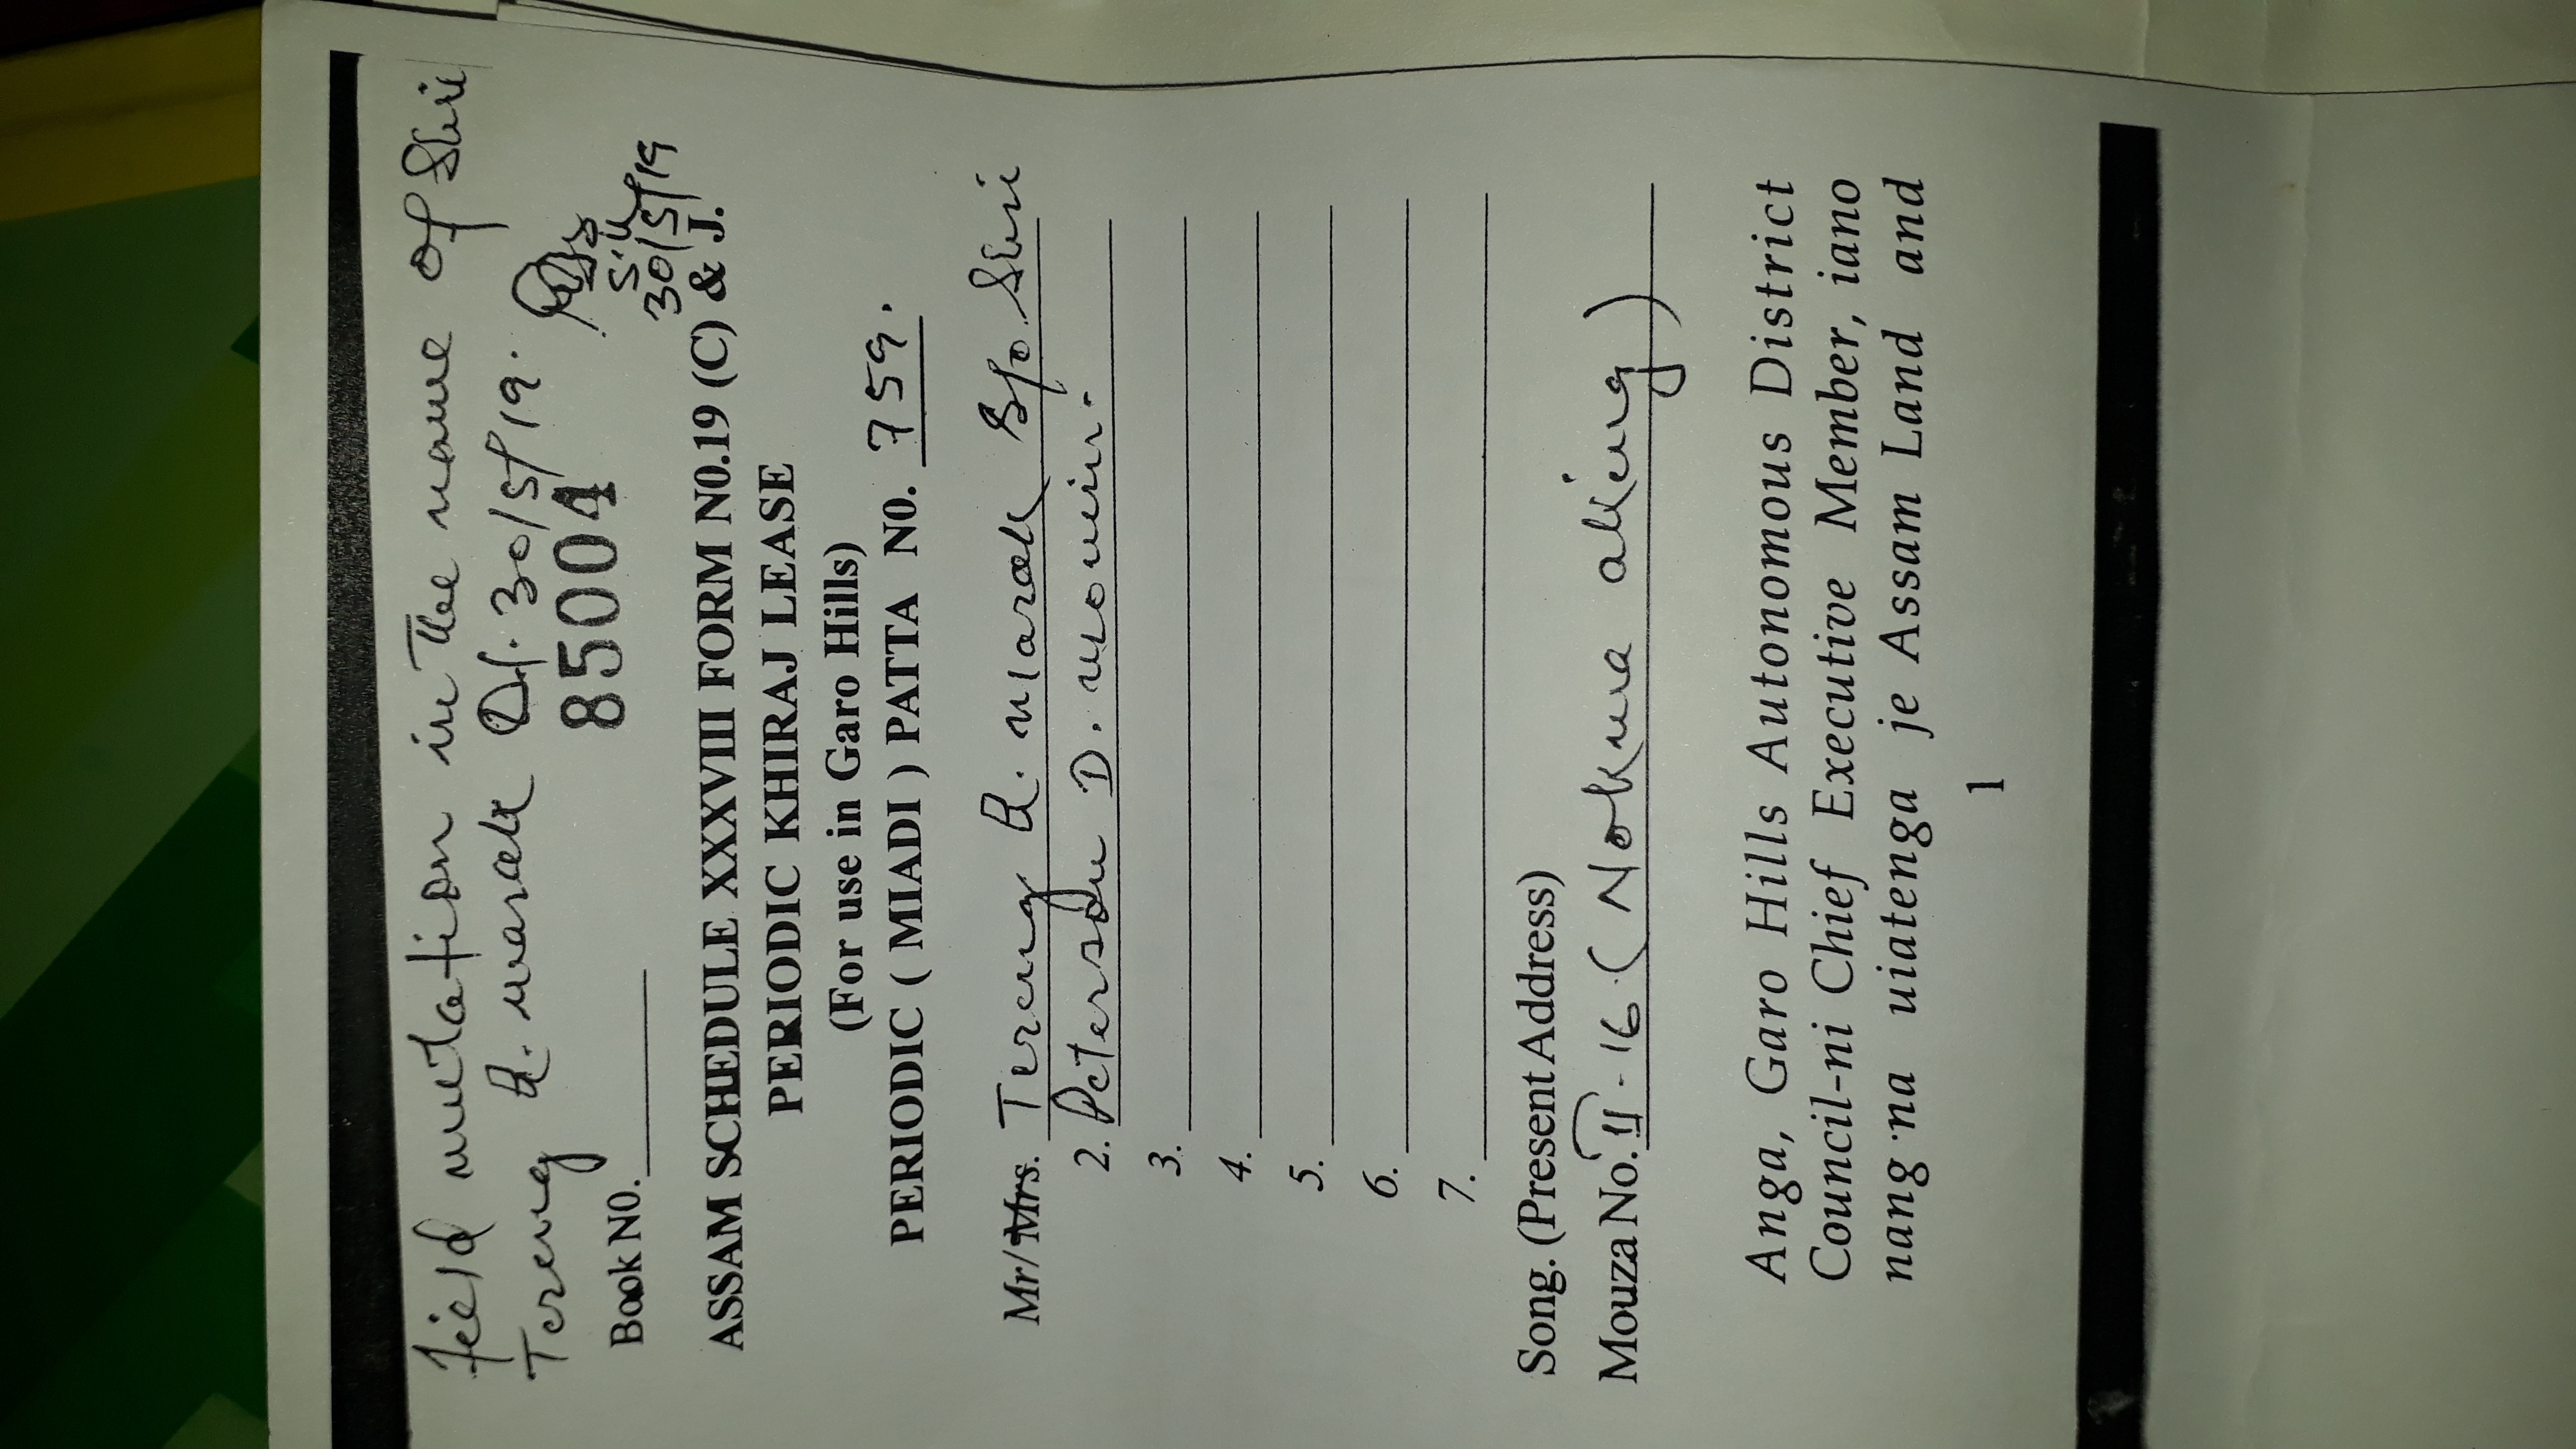 Field mutation in the name of Shri
Tereng ch. marak Dt. 30/5/19.
S.K
30/5/19
Book N0.
85004
ASSAM SCHEDULE XXXVIII FORM N0.19 (C) & J.
PERIODIC KHIRAJ LEASE
(For use in Garo Hills)
PERIODIC ( MIADI ) PATTA N0. 759.
Mr/Mrs. Tereng ch. marak S/o. Shri
2. Peterson D. momin.
3.
4.
5.
6.
7.
Song. (Present Address)
Mouza No. II - 16. ( Nokma aking )
Anga, Garo Hills Autonomous District
Council-ni Chief Executive Member, iano
nang·na uiatenga je Assam Land and
1